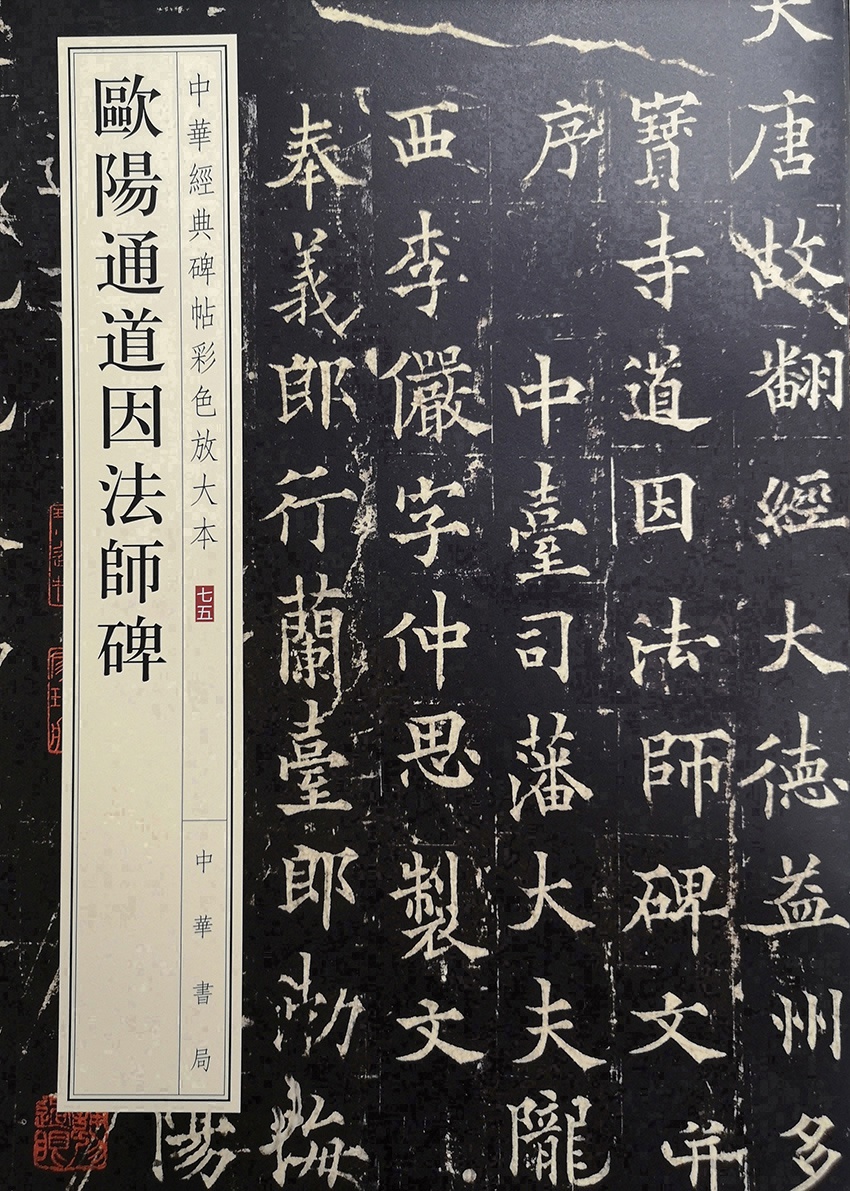 歐陽通道因法師碑
中華經典碑帖彩色放大本
七五
中華書局
大
唐故翻經大德益州多
寶寺道因法師碑文并
序
中臺司藩大夫隴
西李儼字仲思製文
奉義郎行蘭臺郎渤海
陽